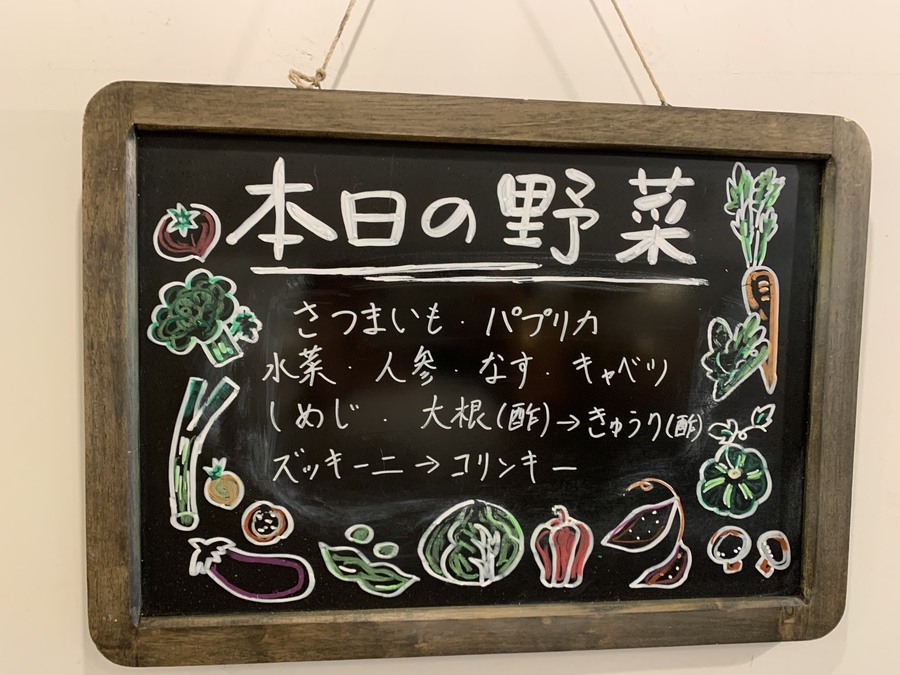 本日の野菜
さつまいも・パプリカ
水菜・人参・なす・キャベツ
しめじ・大根(酢)→きゅうり(酢)
ズッキーニ→コリンキー